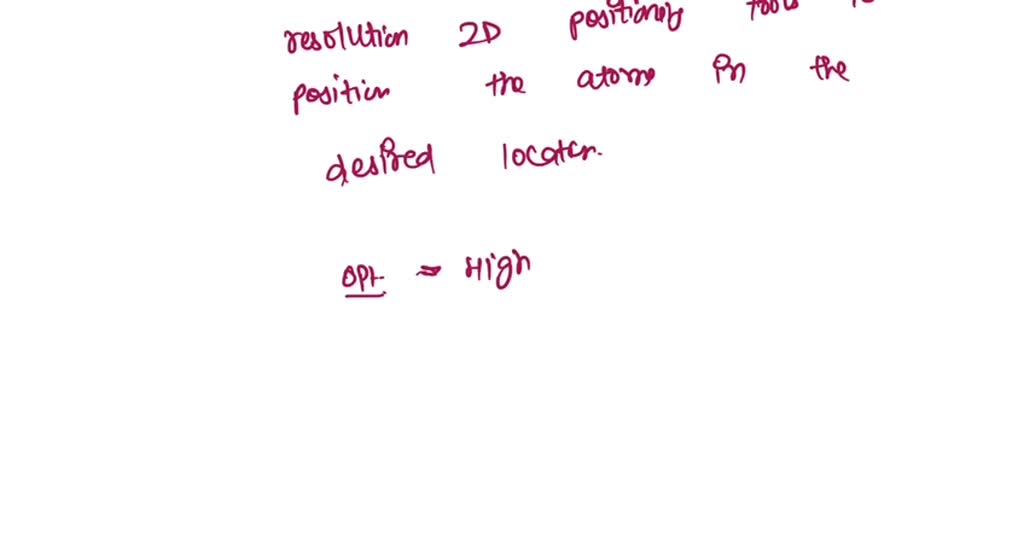 resolution 2D positioning tools to
position the atoms in the
desired locaten.
opt = High